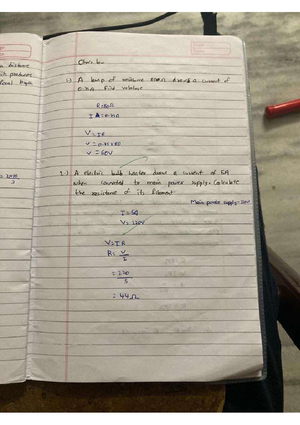 Ohm's law
1.) A lamp of resistance 80Ω draws a current of
0.75A find voltage
R=80Ω
I = 0.75A
V=IR
V = 0.75 x 80
V = 60V
2.) A electric bulb heater draws a current of 5A
when connected to main power supply. Calculate
the resistance of its filament
Main power supply - 220V
I = 5A
V = 220V
V=IR
R= V
I
= 220
5
= 44Ω